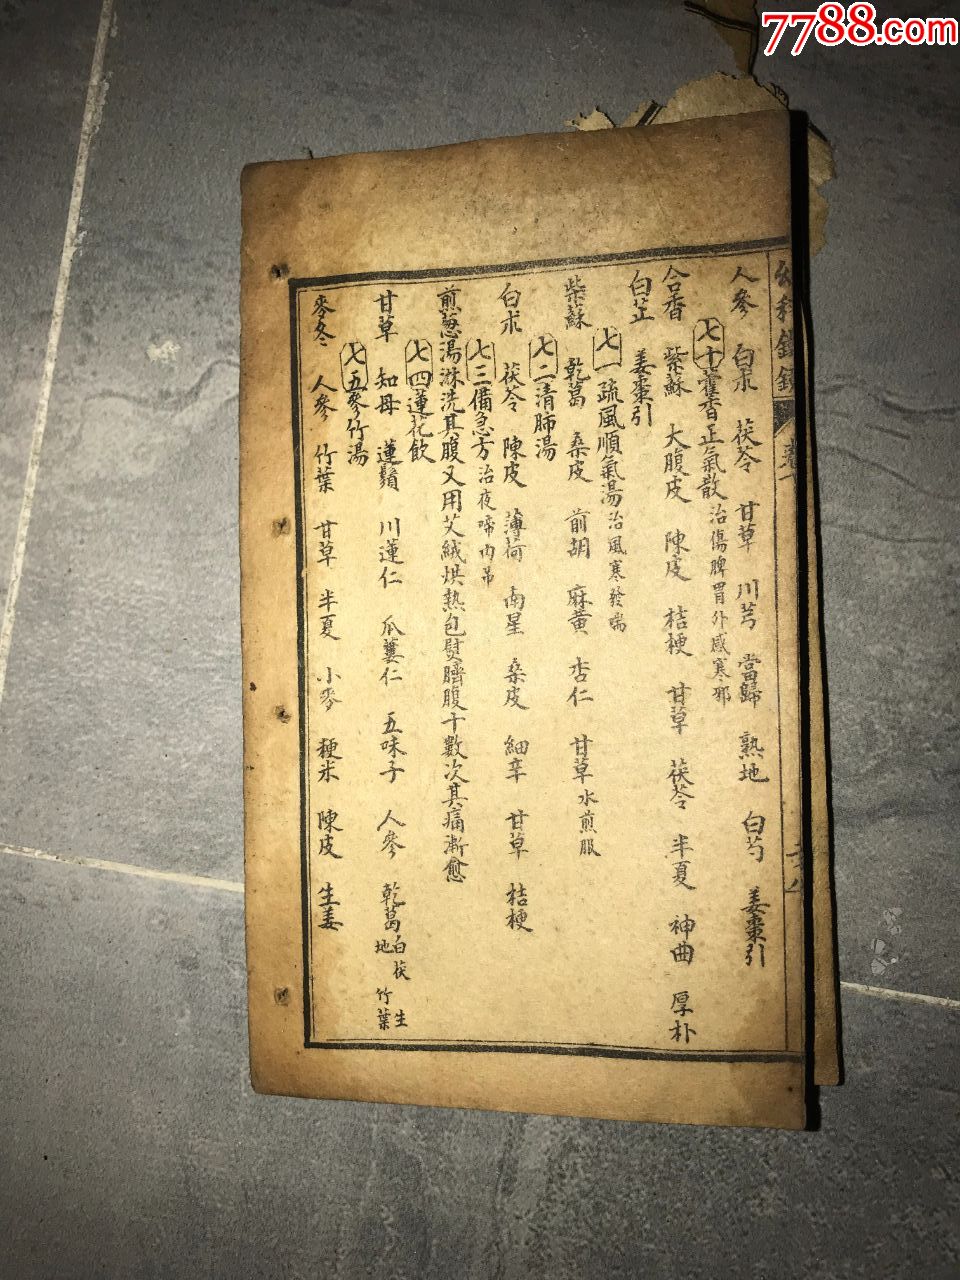 7788.com
人參　白朮　茯苓　甘草　川芎　當歸　熟地　白芍　姜棗引
七十藿香正氣散治傷脾胃外感寒邪
合香　紫蘇　大腹皮　陳皮　桔梗　甘草　茯苓　半夏　神曲　厚朴
白芷　姜棗引
七一疏風順氣湯治風寒發喘
柴蘇　乾葛　桑皮　前胡　麻黄　杏仁　甘草水煎服
七二清肺湯
白朮　茯苓　陳皮　薄荷　南星　桑皮　細辛　甘草　桔梗
七三備急方治夜啼內吊
煎葱湯淋洗其腹又用艾絨烘熱包熨臍腹十數次其痛漸愈
七四蓮花飲
甘草　知母　蓮鬚　川蓮仁　瓜蔞仁　五味子　人參　乾葛白茯生地竹葉
七五參竹湯
麥冬　人參　竹葉　甘草　半夏　小麥　粳米　陳皮　生姜